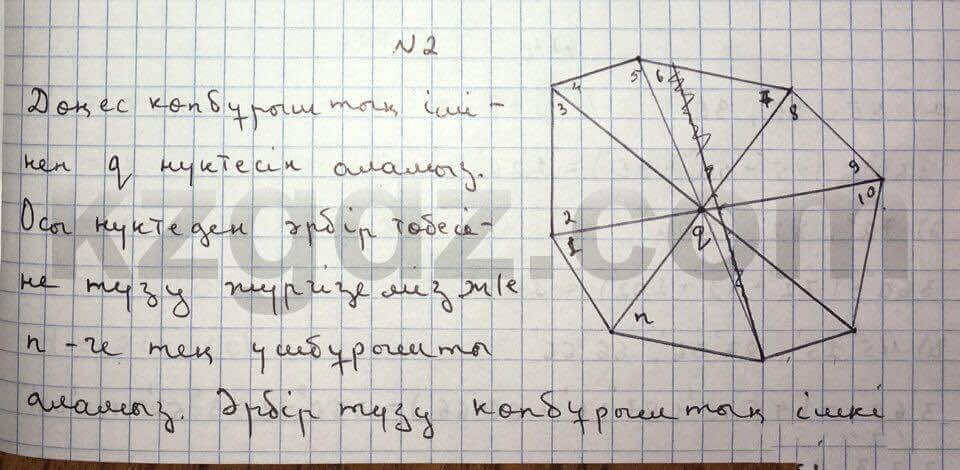 N 2
Дөңес көпбұрыштың іші-
нен q нүктесін аламыз.
Осы нүктеден әрбір төбесі-
не түзу жүргіземіз ж/е
n -ге тең үшбұрышты
аламыз. Әрбір түзу көпбұрыштың ішкі
3 4 5 6 7 8
9 10
2 1
q
n
kzgaz.com